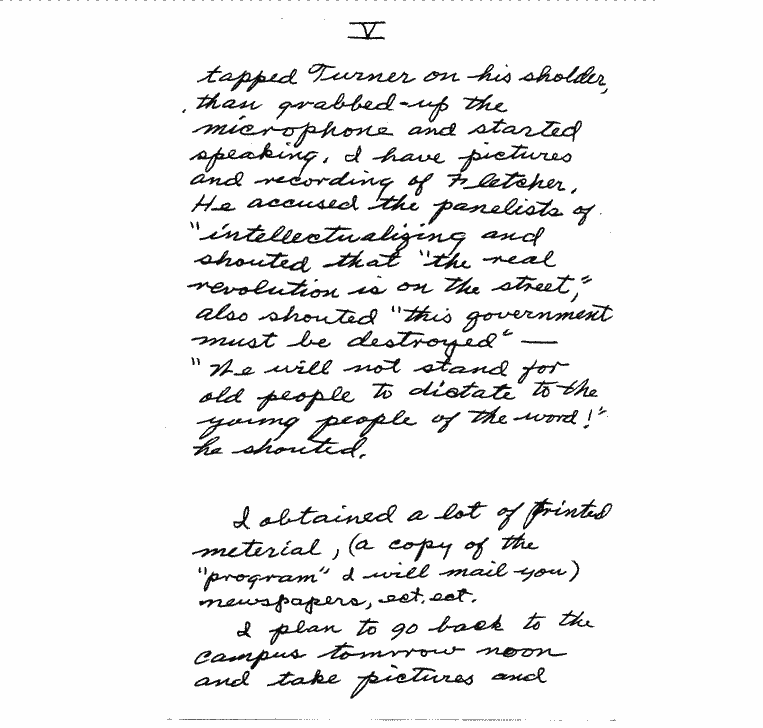 V
tapped Turner on his sholder,
than grabbed-up the
microphone and started
speaking. I have pictures
and recording of Fletcher.
He accused the panelists of
"intellectualizing and
shouted that "the real
revolution is on the street,"
also shouted "this government
must be destroyed" —
"We will not stand for
old people to dictate to the
young people of the word!"
he shouted.
I obtained a lot of printed
meterial, (a copy of the
"program" I will mail you)
newspapers, ect. ect.
I plan to go back to the
campus tomrrow noon
and take pictures and